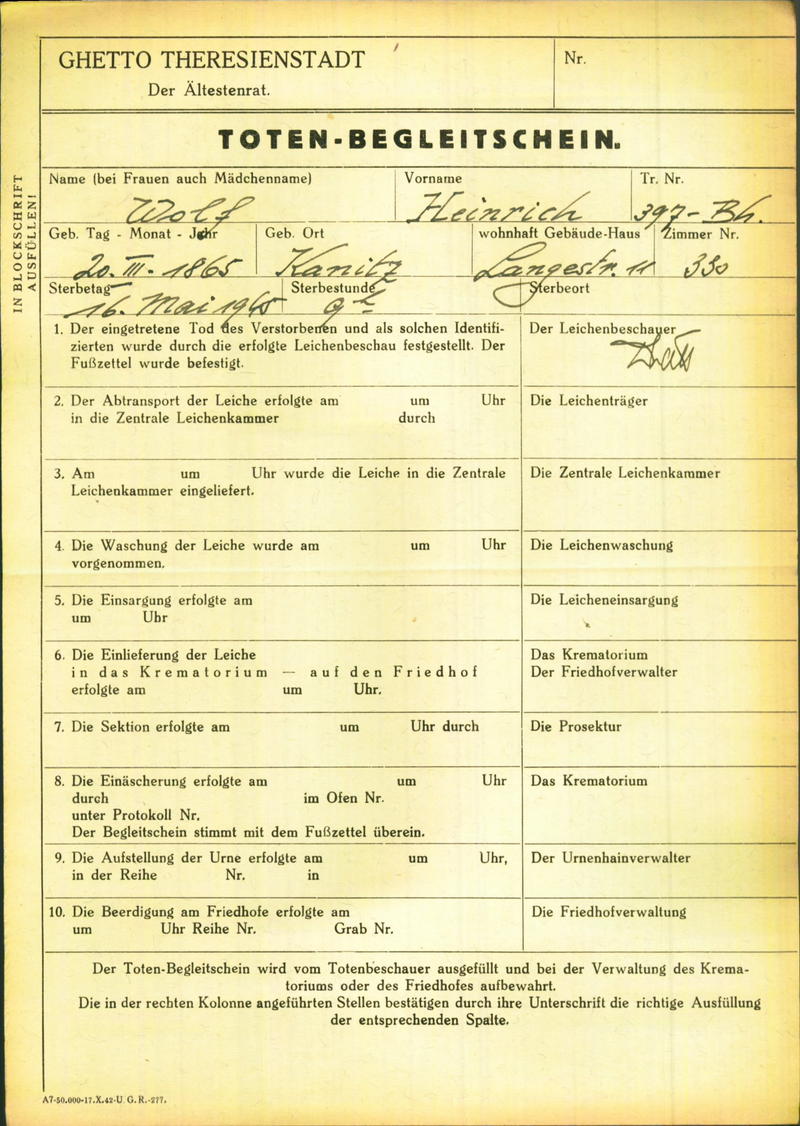 GHETTO THERESIENSTADT
Der Ältestenrat.
Nr.
TOTEN-BEGLEITSCHEIN.
IN BLOCKSCHRIFT
AUSFÜLLEN!
Name (bei Frauen auch Mädchenname)
Wolf
Vorname
Heinrich
Tr. Nr.
397-Bh.
Geb. Tag - Monat - Jahr
20. III. 1865
Geb. Ort
Kanitz
wohnhaft Gebäude-Haus
Langestr. 11
Zimmer Nr.
330
Sterbetag
16. Mai 1945
Sterbestunde
9h
Sterbeort
1. Der eingetretene Tod des Verstorbenen und als solchen Identifi-
zierten wurde durch die erfolgte Leichenbeschau festgestellt. Der
Fußzettel wurde befestigt.
Der Leichenbeschauer
2. Der Abtransport der Leiche erfolgte am um Uhr
in die Zentrale Leichenkammer durch
Die Leichenträger
3. Am um Uhr wurde die Leiche in die Zentrale
Leichenkammer eingeliefert.
Die Zentrale Leichenkammer
4. Die Waschung der Leiche wurde am um Uhr
vorgenommen.
Die Leichenwaschung
5. Die Einsargung erfolgte am
um Uhr
Die Leicheneinsargung
6. Die Einlieferung der Leiche
in das Krematorium — auf den Friedhof
erfolgte am um Uhr.
Das Krematorium
Der Friedhofverwalter
7. Die Sektion erfolgte am um Uhr durch
Die Prosektur
8. Die Einäscherung erfolgte am um Uhr
durch im Ofen Nr.
unter Protokoll Nr.
Der Begleitschein stimmt mit dem Fußzettel überein.
Das Krematorium
9. Die Aufstellung der Urne erfolgte am um Uhr,
in der Reihe Nr. in
Der Urnenhainverwalter
10. Die Beerdigung am Friedhofe erfolgte am
um Uhr Reihe Nr. Grab Nr.
Die Friedhofverwaltung
Der Toten-Begleitschein wird vom Totenbeschauer ausgefüllt und bei der Verwaltung des Krema-
toriums oder des Friedhofes aufbewahrt.
Die in der rechten Kolonne angeführten Stellen bestätigen durch ihre Unterschrift die richtige Ausfüllung
der entsprechenden Spalte.
A7-50.000-17.X.42-U G.R.-277.